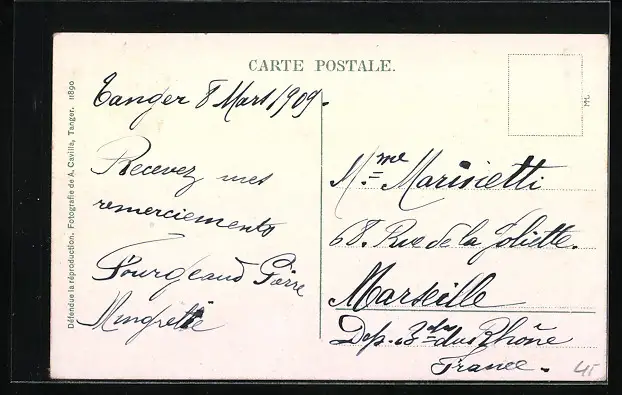 CARTE POSTALE.
Tanger 8 Mars 1909.
Recevez mes
remerciements
Fourgeaud Pierre
Mme Marinietti
68. Rue de la Joliette.
Marseille
Dep. Bches du Rhône
France.
45
Défendue la réproduction. Fotografie de A. Cavilla, Tanger. 11890